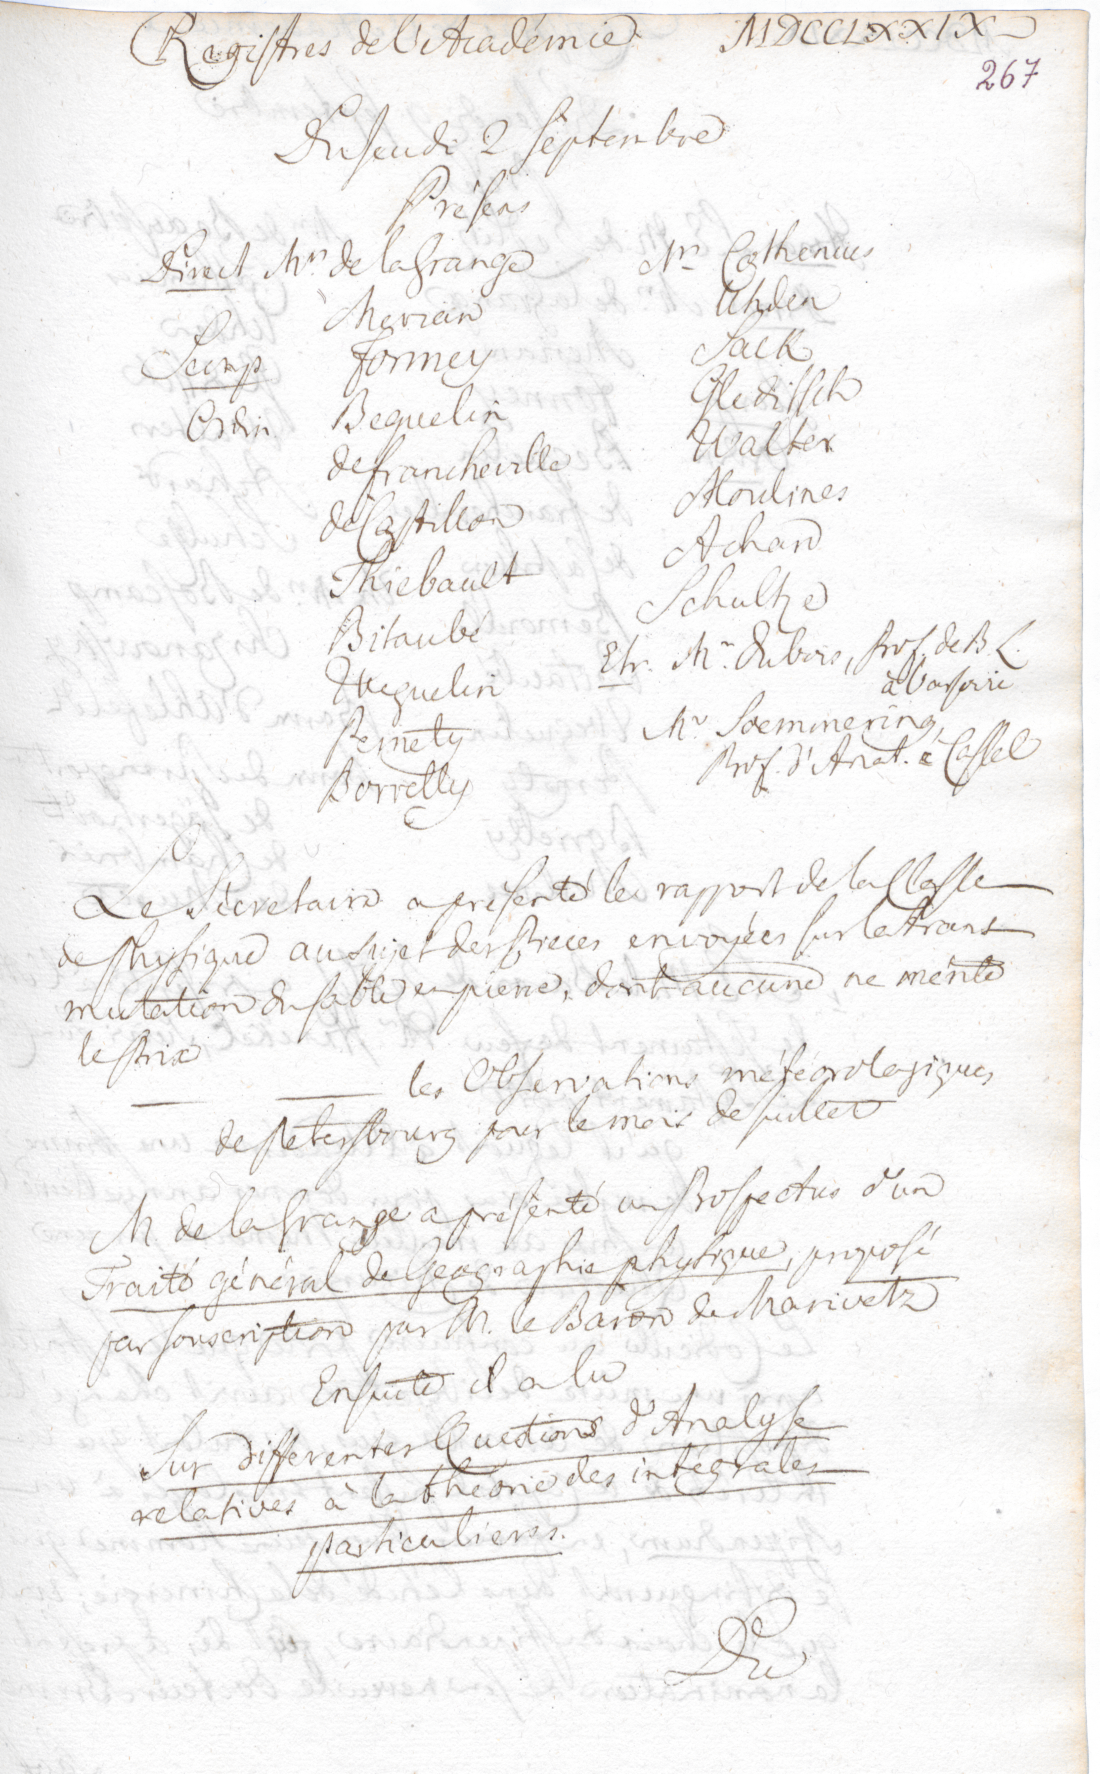 Registres de l'Académie MDCCLXXIX
267
Du Jeudi 2 Septembre
Présens
Direct Mrs de la Grange
Merian
Secr. p Formey
Ordin Beguelin
de Francheville
de Castillon
Thiebault
Bitaubé
Weguelin
Pernety
Borrelly
Mrs Cothenius
Uhden
Sack
Gleditsch
Walter
Moulines
Achard
Schultze
Etr. Mr. Dubois, Prof. de B. L.
à Varsovie
Mr Soemmering,
Prof. d'Anat. à Cassel
Le Secretaire a présenté le rapport de la Classe
de Physique au sujet des Pieces envoyées sur la trans
mutation du sable en pierre, dont aucune ne mérite
le Prix
les Observations météorologiques
de Petersbourg pour le mois de Juillet
M. de la Grange a présenté un Prospectus d'un
Traité général de Geographie physique, proposé
par souscription par M. le Baron de Marivetz
Ensuite il a lu
Sur differentes Questions d'Analyse
relatives à la théorie des intégrales
particulieres.
Du